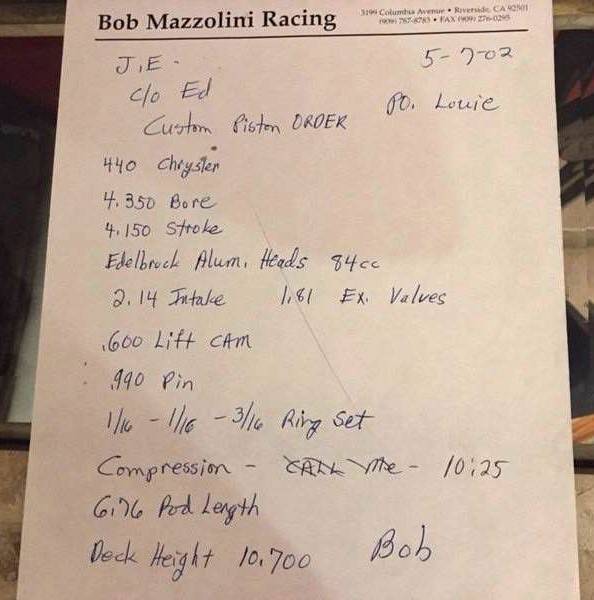 Bob Mazzolini Racing
3199 Columbia Avenue • Riverside, CA 92501
(909) 787-8783 • FAX (909) 276-0295
J.E - 5-7-02
c/o Ed
PO. Louie
Custom Piston ORDER
440 Chrysler
4.350 Bore
4.150 Stroke
Edelbrock Alum. Heads 84cc
2.14 Intake 1.81 Ex. Valves
.600 Lift CAM
.990 Pin
1/16 - 1/16 - 3/16 Ring Set
Compression - CALL Me - 10:25
6.76 Rod Length
Deck Height 10.700 Bob